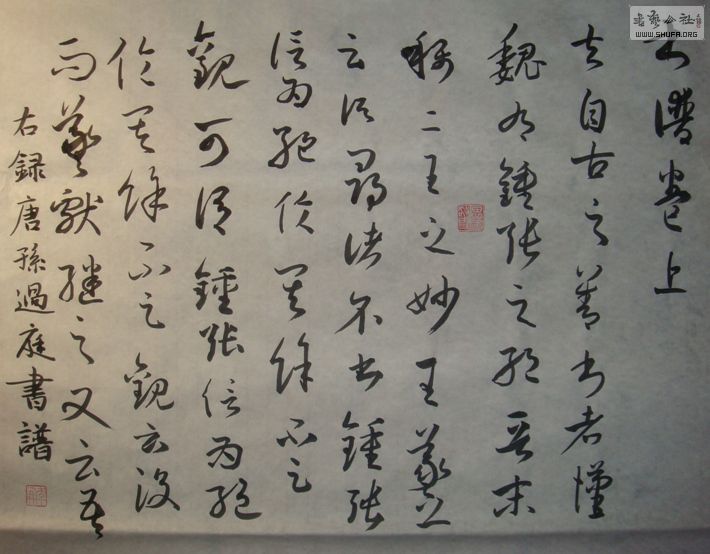 書譜卷上
夫自古之善書者漢
魏有鍾張之絕晉末
稱二王之妙王羲之
云頃尋諸名書鍾張
信為絕倫其餘不足
觀可謂鍾張信為絕
倫其餘不足觀云沒
而羲獻繼之又云吾
右録唐孫過庭書譜
書藝公社
WWW.SHUFA.ORG